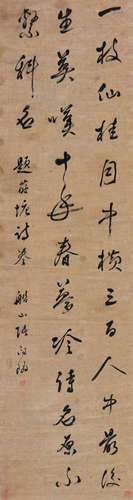 一枝仙桂月中楨三百人中最後
生莫嘆十年春夢冷詩名原不
繫科名 題塘詩卷 船山張問陶